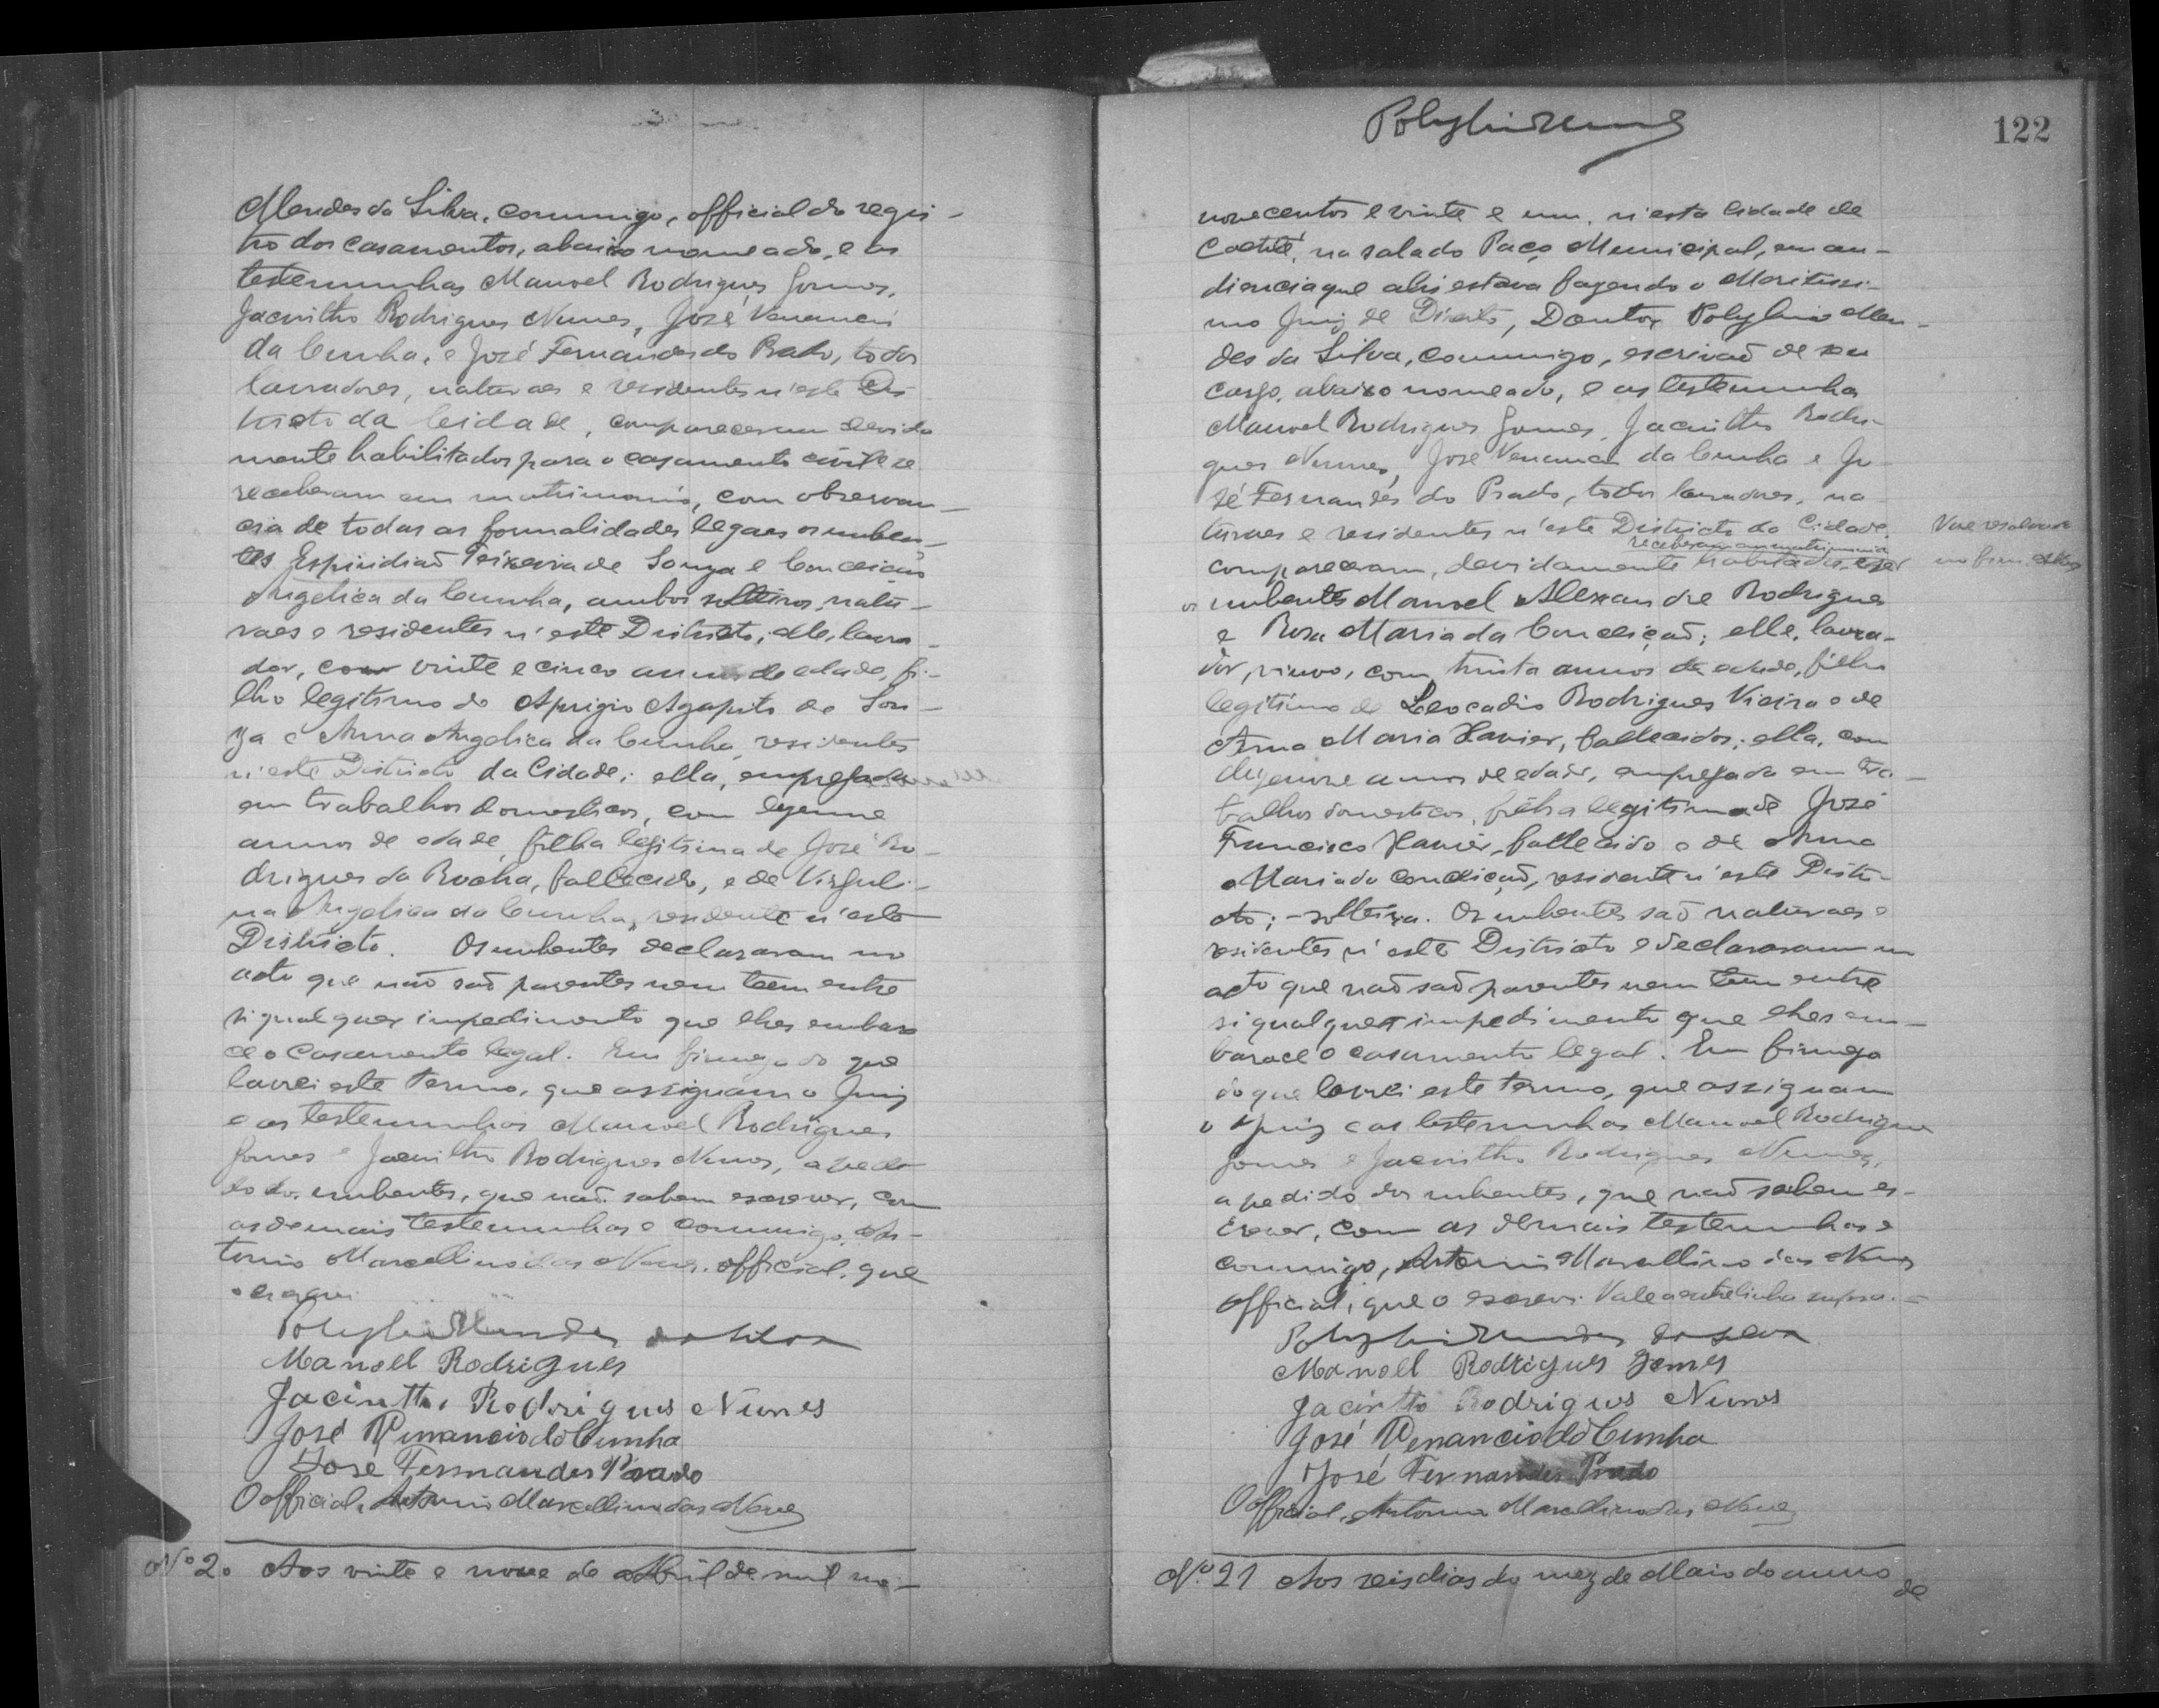 Mendes da Silva, commigo, official do regis-
tro dos casamentos, abaixo nomeado, e as
testemunhas Manoel Rodrigues Gomes,
Jacintho Rodrigues Nunes, José Venancio
da Cunha, e José Fernandes do Prado, todos
lavradores, naturaes e residentes n'este Dis-
tricto da Cidade, compareceram devida
mente habilitados para o casamento civil e se
receberam em matrimonio, com observan-
cia de todas as formalidades legaes os nuben-
tes Espiridião Teixeira de Souza e Conceição
Angelica da Cunha, ambos solteiros, natu-
raes e residentes n'este Districto; elle, lavra-
dor, com vinte e cinco annos de edade, fi-
lho legitimo de Aprigio Agapito de Sou-
za e Anna Angelica da Cunha, residentes
n'este Districto da Cidade; ella, empregada
em trabalhos domesticos, com
annos de edade, filha legitima de José Ro-
drigues da Rocha, fallecido, e de Virguli-
na Angelica da Cunha, residente n'este
Districto. Os nubentes declararam no
acto que não são parentes nem teem entre
si qualquer impedimento que lhes embara
ce o casamento legal. Em firmeza do que
lavrei este termo, que assignam o Juiz
e as testemunhas Manoel Rodrigues
Gomes e Jacintho Rodrigues Nunes, a pedi
do dos nubentes, que não sabem escrever, com
as demais testemunhas e commigo, An-
tonio Marcellino das Neves, official, que
o escrevi
Polybio Mendes da Silva
Manoel Rodrigues
Jacintho Rodrigues Nunes
José Venancio da Cunha
José Fernandes Prado
O official, Antonio Marcellino das Neves
Nº 20 Aos vinte e nove de Abril de mil no-
Polybio Mendes
122
novecentos e vinte e um, n'esta Cidade de
Caetité, na sala do Paço Municipal, em au-
diencia que ahi estava fazendo o Meritissi-
mo Juiz de Direito, Doutor Polybio Men-
des da Silva, commigo, escrivão de seu
cargo, abaixo nomeado, e as testemunhas
Manoel Rodrigues Gomes, Jacintho Rodri-
gues Nunes, José Venancio da Cunha e Jo-
sé Fernandes do Prado, todos lavradores, na
turaes e residentes n'este Districto da Cidade,
receberam em matrimonio
compareceram, devidamente habilitados, e se
os nubentes Manoel Alexandre Rodrigues
e Rosa Maria da Conceição; elle, lavra-
dor, viuvo, com trinta annos de edade, filho
legitimo de Leocadio Rodrigues Vieira e de
Anna Maria Xavier, fallecidos; ella, com
dezenove annos de edade, empregada em tra-
balhos domesticos, filha legitima de José
Francisco Xavier, fallecido e de Anna
Maria da Conceição, residente n'este Distri-
cto; - solteira. Os nubentes são naturaes e
residentes n'este Districto e declararam no
acto que não são parentes nem tem entre
si qualquer impedimento que lhes em-
barace o casamento legal. Em firmeza
do que lavrei este termo, que assignam
o Juiz e as testemunhas Manoel Rodrigues
Gomes e Jacintho Rodrigues Nunes,
a pedido dos nubentes, que não sabem es-
crever, com as demais testemunhas e
commigo, Antonio Marcellino das Neves
official, que o escrevi. Vale a entrelinha supra.-
Polybio Mendes da Silva
Manoel Rodrigues Gomes
Jacintho Rodrigues Nunes
José Venancio da Cunha
José Fernandes Prado
O official, Antonio Marcellino das Neves
Nº 21 Aos seis dias do mez de Maio do anno de